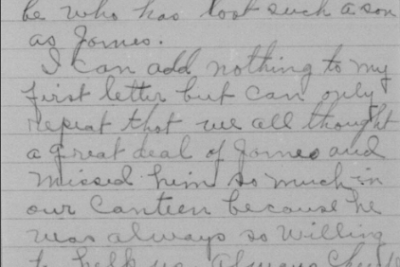 be who has lost such a son
as James.
I can add nothing to my
first letter but can only
repeat that we all thought
a great deal of James and
missed him so much in
our Canteen because he
was always so willing
to help us. Always